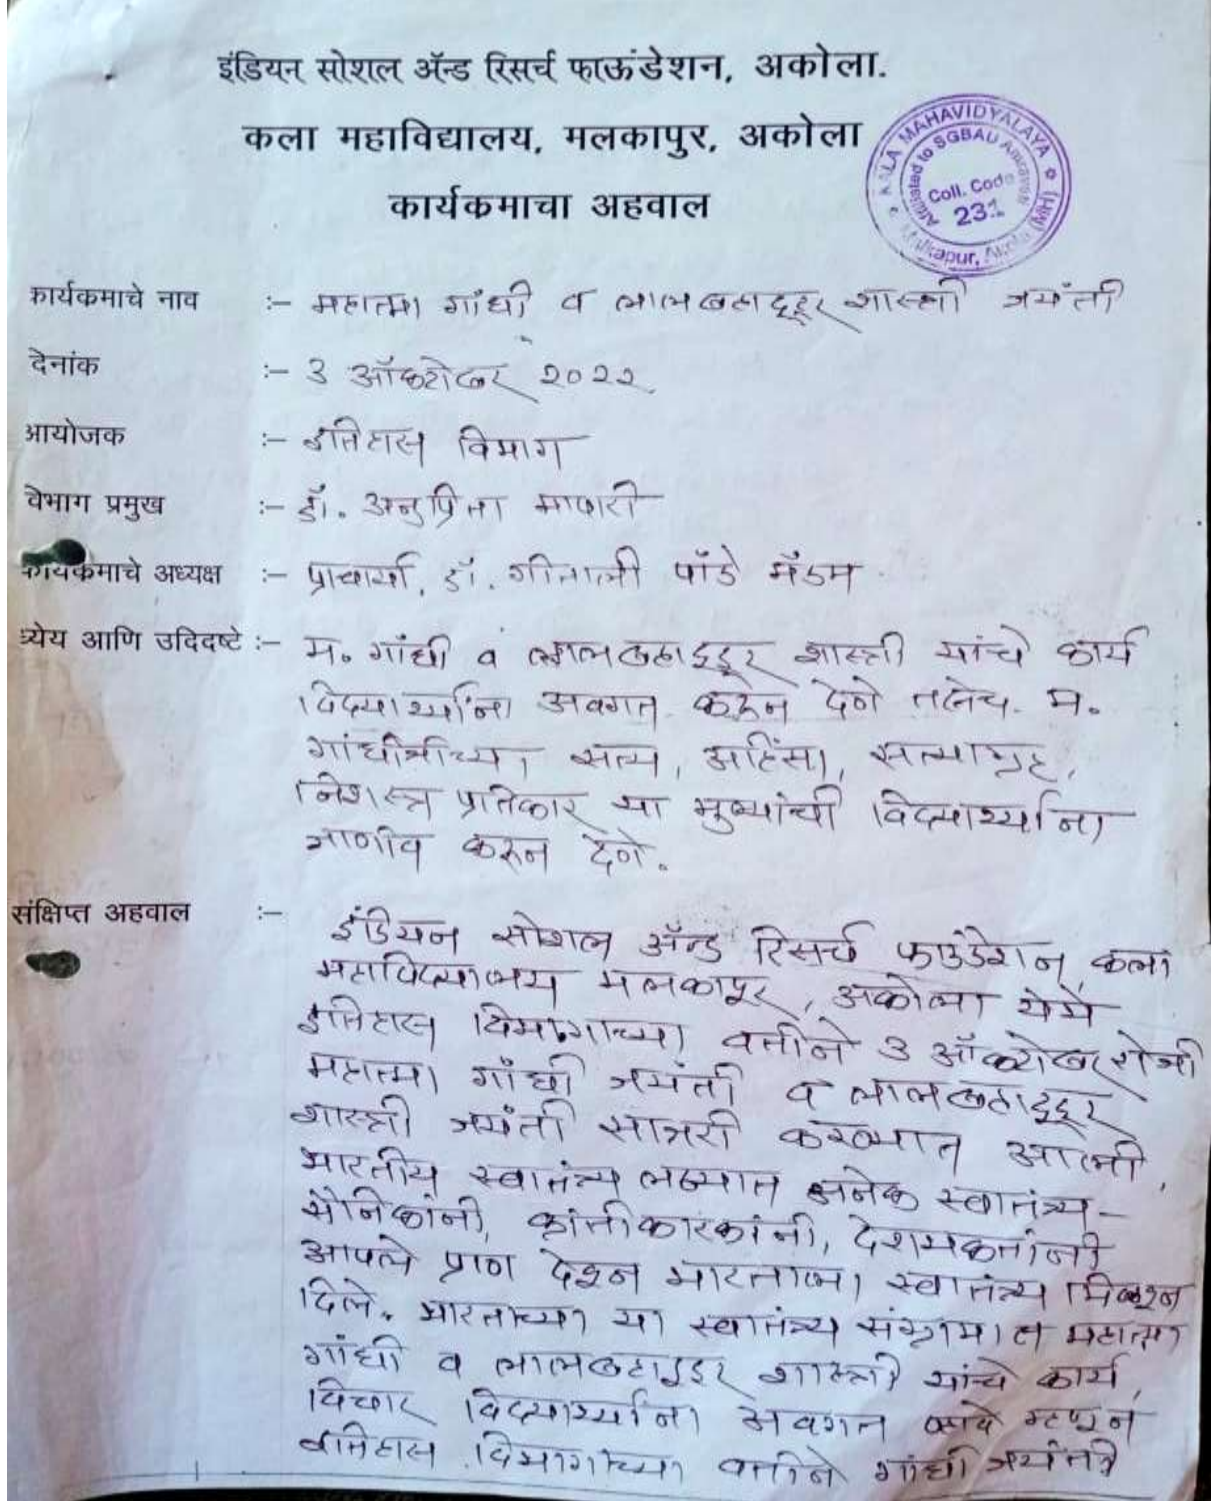 इंडियन सोशल ॲन्ड रिसर्च फाऊंडेशन, अकोला.
कला महाविद्यालय, मलकापुर, अकोला
KALA MAHAVIDYALAYA
Affiliated to SGBAU Amravati
Coll. Code
231
Malkapur, Akola (MH)
कार्यकमाचा अहवाल
कार्यकमाचे नाव :- महात्मा गांधी व लालबहाद्दूर शास्त्री जयंती
देनांक :- 3 ऑक्टोबर २०२२
आयोजक :- इतिहास विभाग
वेभाग प्रमुख :- डॉ. अनुप्रिता मापारी
कार्यकमाचे अध्यक्ष :- प्राचार्या, डॉ. गीताली पाँडे मॅडम
ध्येय आणि उदिदष्टे :- म. गांधी व लालबहाद्दूर शास्त्री यांचे कार्य
विद्यार्थ्यांना अवगत करून देणे तसेच म.
गांधीजीच्या सत्य, अहिंसा, सत्याग्रह,
निशस्त्र प्रतिकार या मुल्यांची विद्यार्थ्यांना
जाणीव करून देणे.
संक्षिप्त अहवाल :- इंडियन सोशल ॲन्ड रिसर्च फाउंडेशन, कला
महाविद्यालय मलकापूर, अकोला येथे
इतिहास विभागाच्या वतीने 3 ऑक्टोबर रोजी
महात्मा गांधी जयंती व लालबहाद्दूर
शास्त्री जयंती साजरी करण्यात आली.
भारतीय स्वातंत्र्य लढ्यात अनेक स्वातंत्र्य-
सैनिकांनी, क्रांतीकारकांनी, देशभक्तांनी
आपले प्राण देऊन भारताला स्वातंत्र्य मिळवून
दिले. भारताच्या या स्वातंत्र्य संग्रामात महात्मा
गांधी व लालबहाद्दूर शास्त्री यांचे कार्य,
विचार विद्यार्थ्यांना अवगत व्हावे म्हणून
इतिहास विभागाच्या वतीने गांधी जयंती